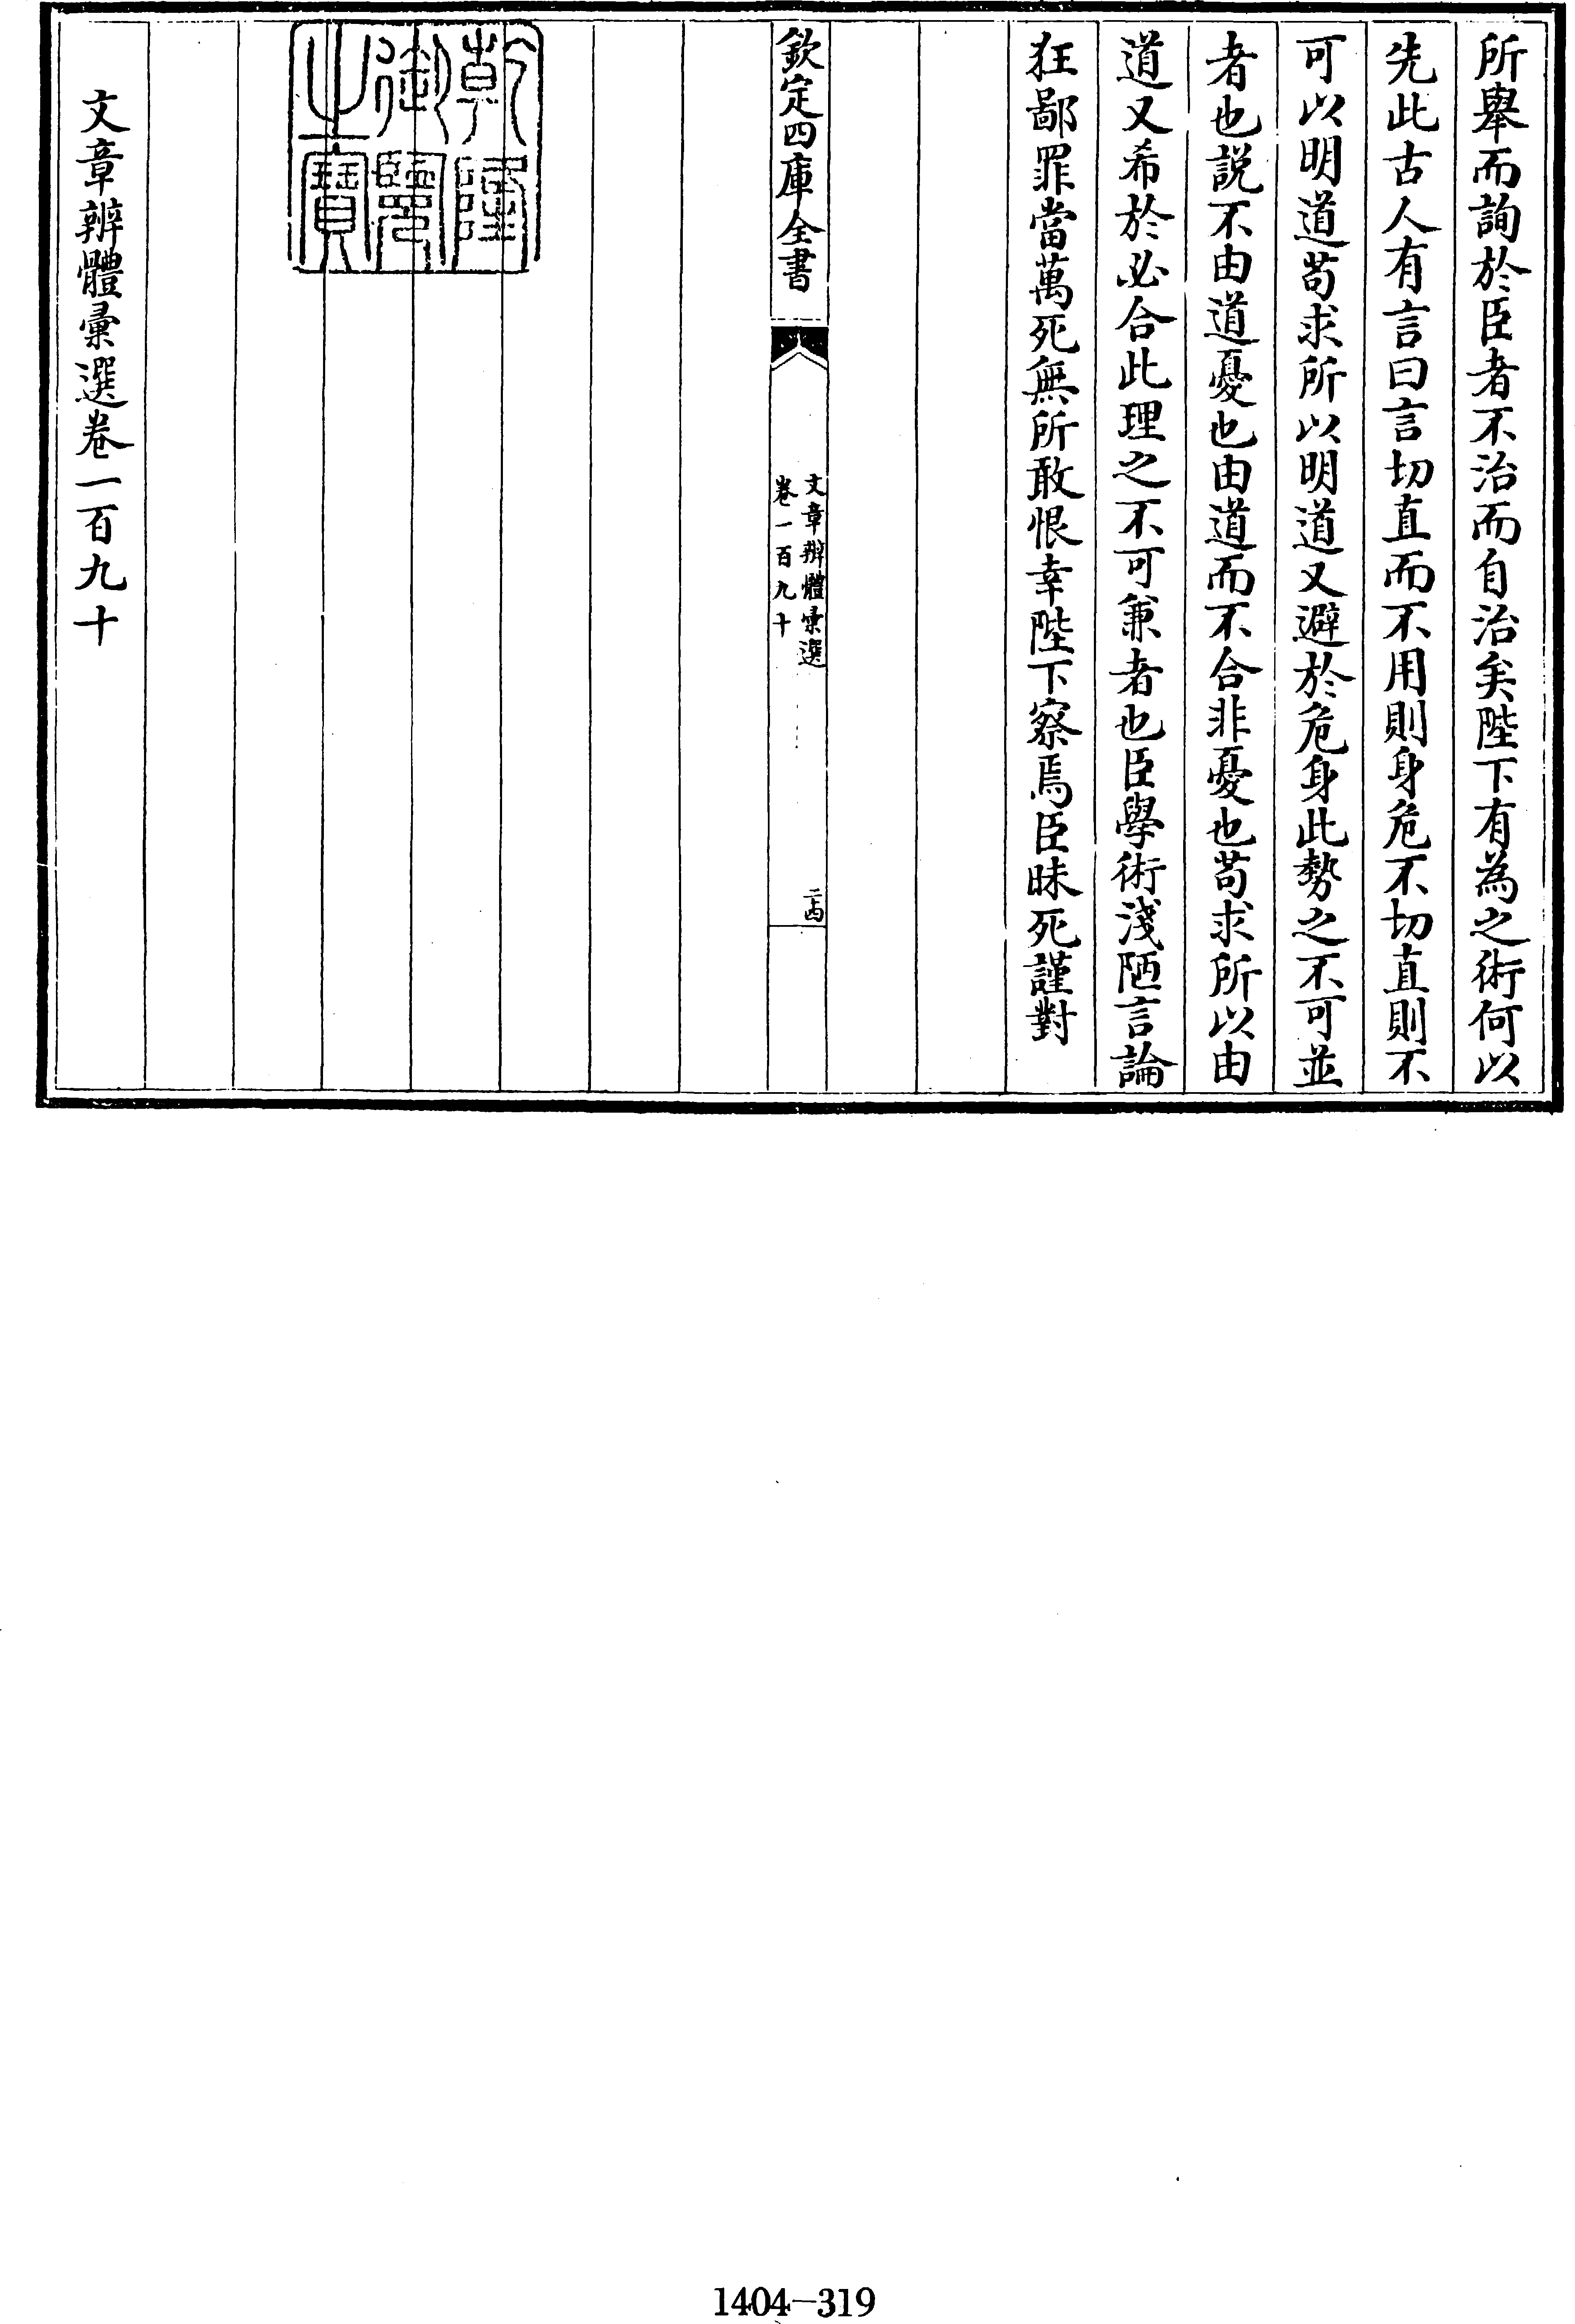 所舉而詢於臣者不治而自治矣陛下有為之術何以
先此古人有言曰言切直而不用則身危不切直則不
可以明道苟求所以明道又避於危身此勢之不可並
者也説不由道憂也由道而不合非憂也苟求所以由
道又希於必合此理之不可兼者也臣學術淺陋言論
狂鄙罪當萬死無所敢恨幸陛下察焉臣昧死謹對
欽定四庫全書
文章辨體彙選
卷一百九十
二十四
乾隆
御覽
之寶
文章辨體彙選卷一百九十
1404-319